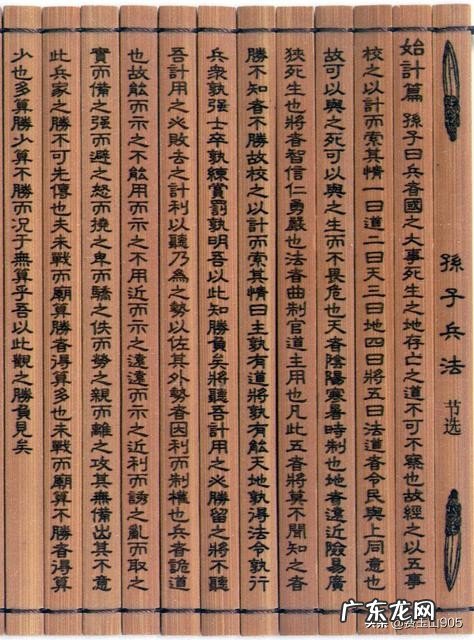 孫子兵法 节选
始計篇 孫子曰兵者國之大事死生之地存亡之道不可不察也故經之以五事
校之以計而索其情一曰道二曰天三曰地四曰將五曰法道者令民與上同意也
故可以與之死可以與之生而不畏危也天者陰陽寒暑時制也地者遠近險易廣
狹死生也將者智信仁勇嚴也法者曲制官道主用也凡此五者將莫不聞知之者
勝不知者不勝故校之以計而索其情曰主孰有道將孰有能天地孰得法令孰行
兵衆孰强士卒孰練賞罰孰明吾以此知勝負矣將聽吾計用之必勝留之將不聽
吾計用之必敗去之計利以聽乃為之勢以佐其外勢者因利而制權也兵者詭道
也故能而示之不能用而示之不用近而示之遠遠而示之近利而誘之亂而取之
實而備之强而避之怒而撓之卑而驕之佚而勞之親而離之攻其無備出其不意
此兵家之勝不可先傳也夫未戰而廟算勝者得算多也未戰而廟算不勝者得算
少也多算勝少算不勝而況于無算乎吾以此觀之勝負見矣
广东龙网